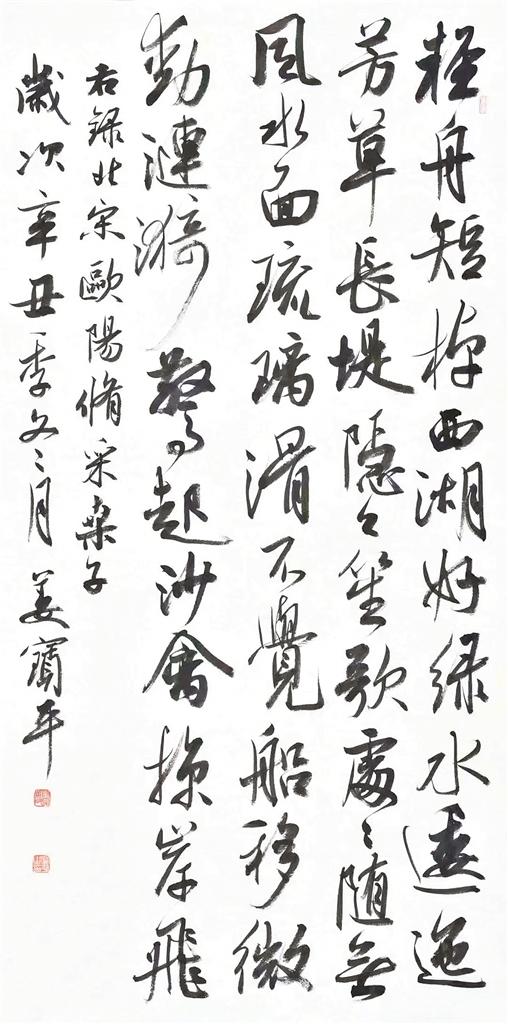 輕舟短棹西湖好綠水逶迤
芳草長堤隱々笙歌處々随無
風水面琉璃滑不覺船移微
動漣漪驚起沙禽掠岸飛
右録北宋歐陽脩采桑子
歲次辛丑季冬之月姜寶平